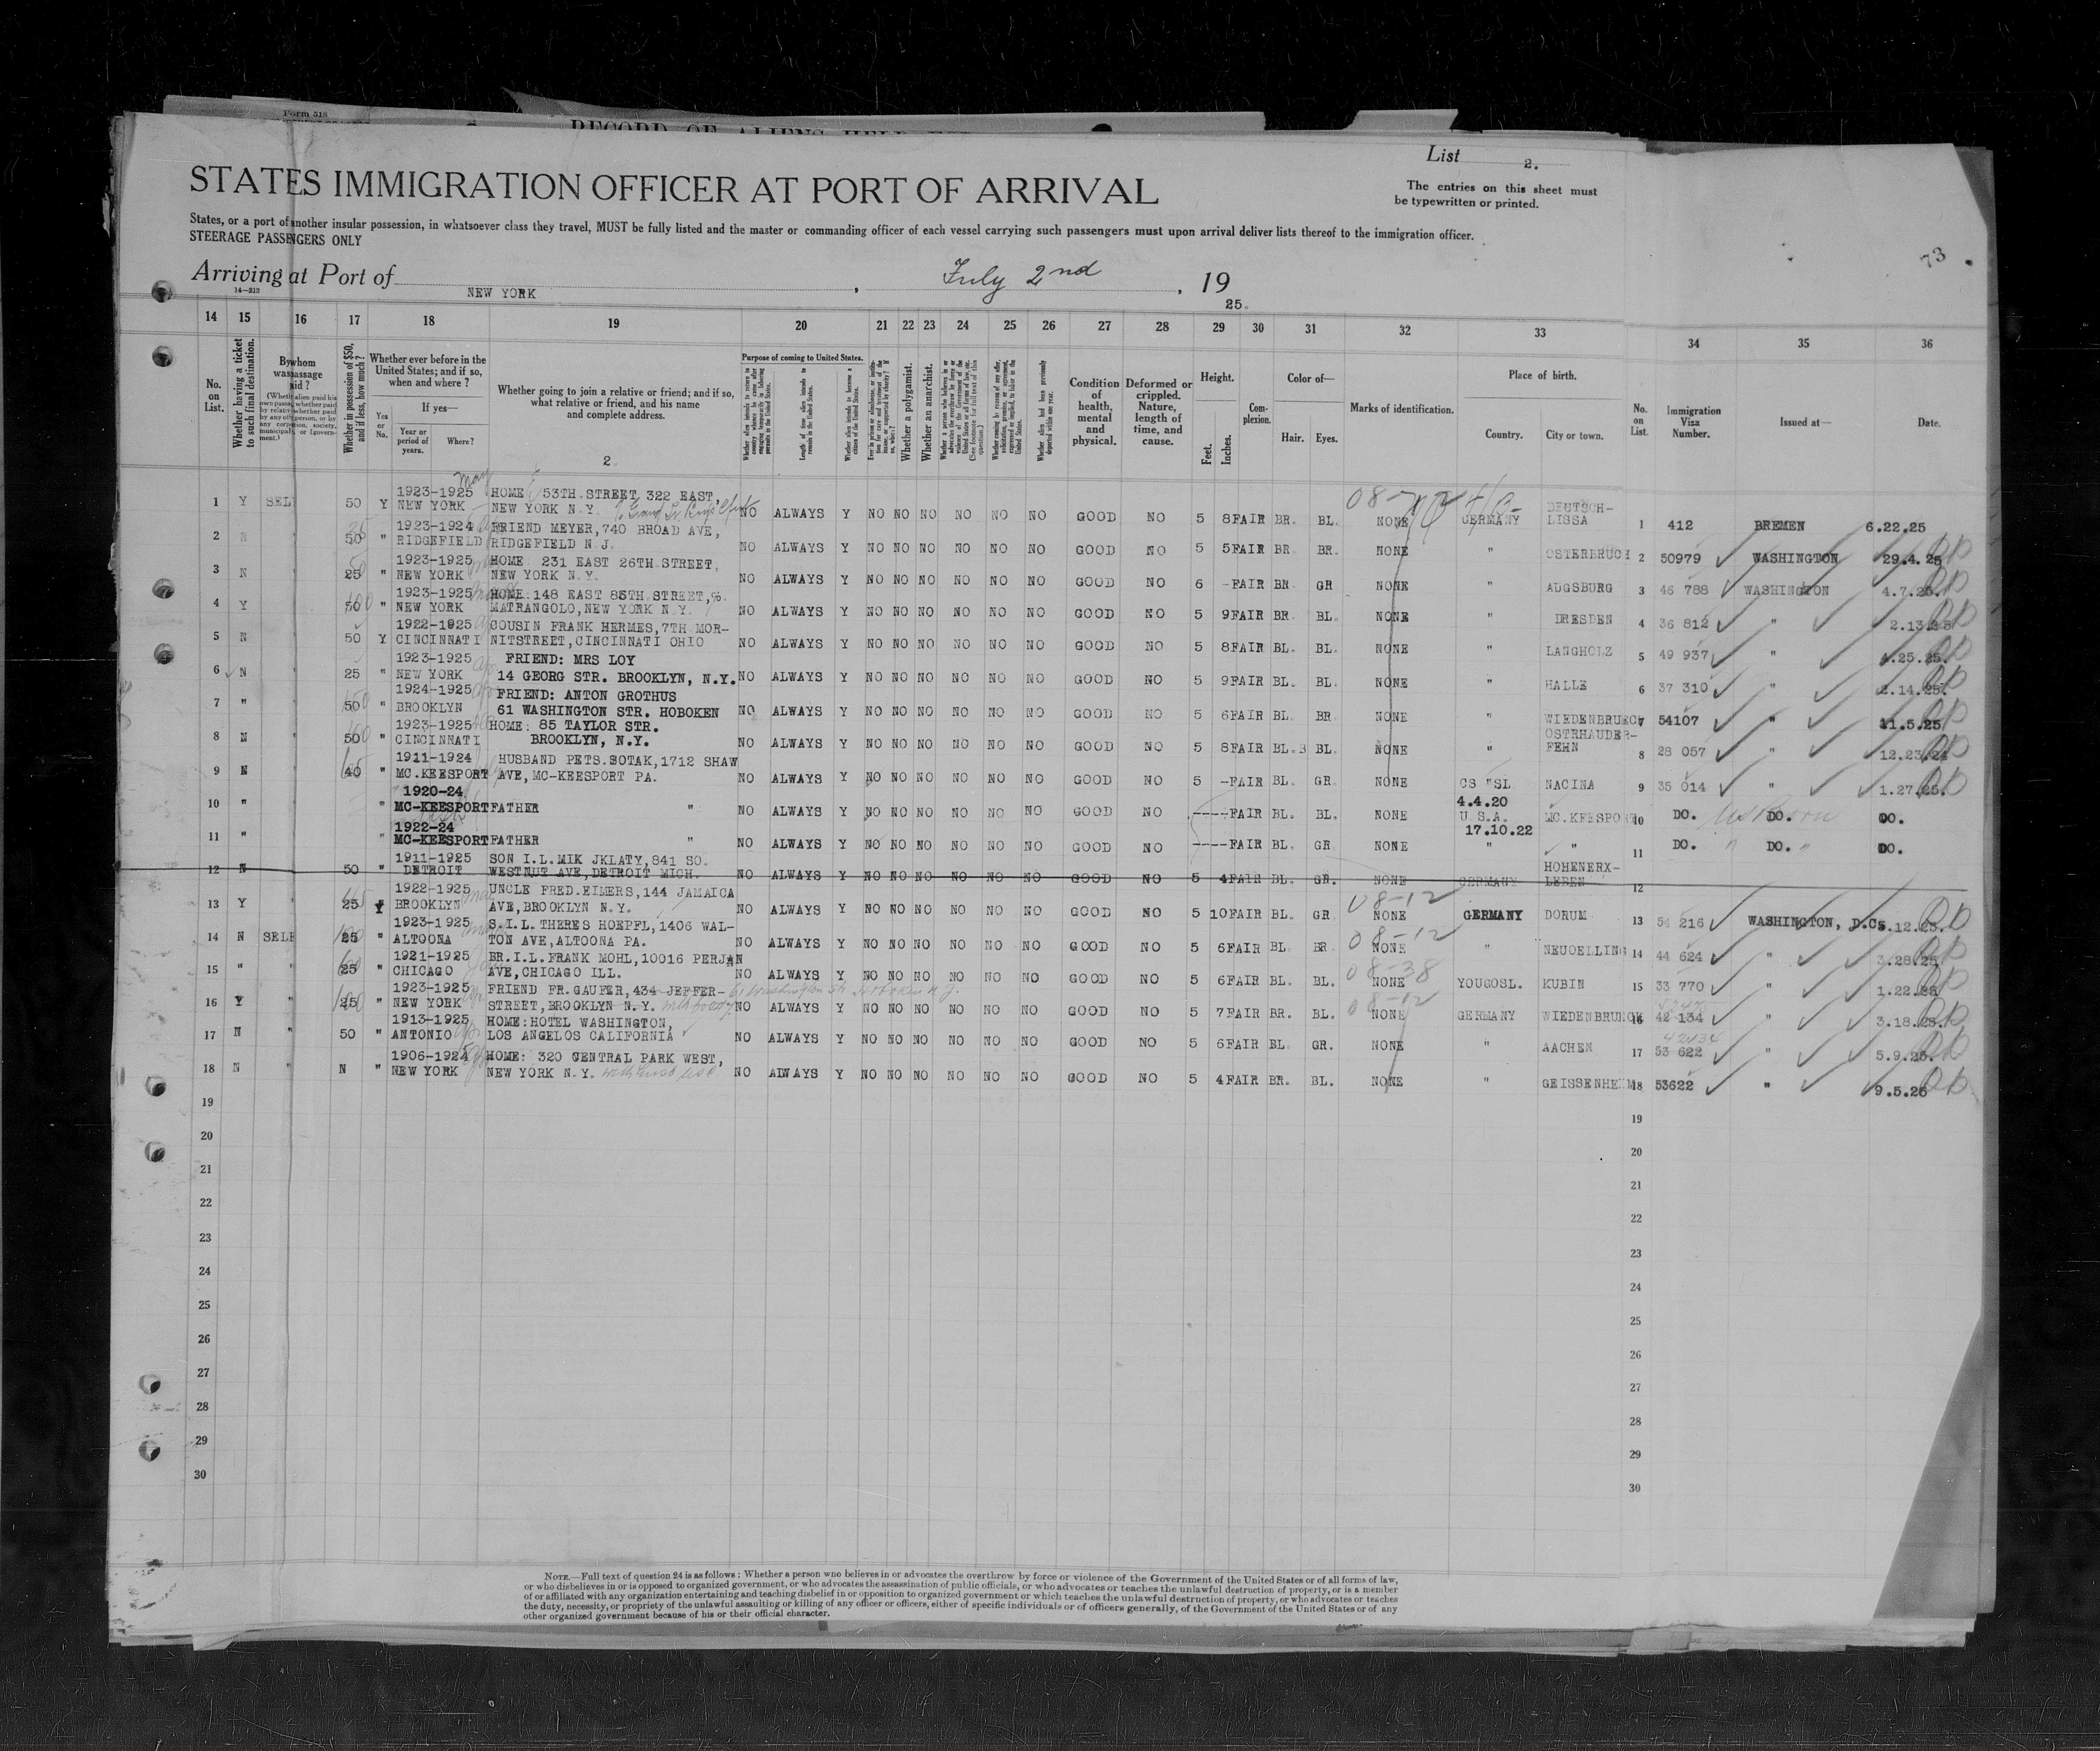 Form 518
RECORD OF ALIENS HELD
List 2.
STATES IMMIGRATION OFFICER AT PORT OF ARRIVAL
The entries on this sheet must
be typewritten or printed.
States, or a port of another insular possession, in whatsoever class they travel, MUST be fully listed and the master or commanding officer of each vessel carrying such passengers must upon arrival deliver lists thereof to the immigration officer.
STEERAGE PASSENGERS ONLY
73
Arriving at Port of NEW YORK, July 2nd, 1925.
14—212
14 15 16 17 18 19 20 21 22 23 24 25 26 27 28 29 30 31 32 33 34 35 36
No. on List.
Whether having a ticket to such final destination.
By whom was passage paid?
Whether in possession of $50, and if less, how much?
Whether ever before in the United States; and if so, when and where?
Yes or No.
If yes—
Year or period of years.
Where?
Whether going to join a relative or friend; and if so, what relative or friend, and his name and complete address.
2.
Purpose of coming to United States.
Whether a polygamist.
Whether an anarchist.
Condition of health, mental and physical.
Deformed or crippled. Nature, length of time, and cause.
Height.
Feet.
Inches.
Complexion.
Color of—
Hair.
Eyes.
Marks of identification.
Place of birth.
Country.
City or town.
No. on List.
Immigration Visa Number.
Issued at—
Date.
1 Y SELF 50 Y 1923-1925 NEW YORK HOME 53TH STREET 322 EAST, NEW YORK N.Y. NO ALWAYS Y NO NO NO NO NO NO GOOD NO 5 8 FAIR BR. BL. NONE GERMANY DEUTSCH-LISSA 1 412 BREMEN 6.22.25
2 N " 50 " 1923-1924 RIDGEFIELD FRIEND MEYER, 740 BROAD AVE, RIDGEFIELD N.J. NO ALWAYS Y NO NO NO NO NO NO GOOD NO 5 5 FAIR BR. BR. NONE " OSTERBRUCH 2 50979 WASHINGTON 29.4.25
3 N " 25 " 1923-1925 NEW YORK HOME: 231 EAST 26TH STREET, NEW YORK N.Y. NO ALWAYS Y NO NO NO NO NO NO GOOD NO 6 - FAIR BR GR NONE " AUGSBURG 3 46 788 WASHINGTON 4.7.25.
4 Y " 50 " 1923-1925 NEW YORK HOME: 148 EAST 85TH STREET,%. MATRANGOLO, NEW YORK N.Y. NO ALWAYS Y NO NO NO NO NO NO GOOD NO 5 9 FAIR BR. BL. NONE " DRESDEN 4 36 812 " 2.13.25
5 N " 50 Y 1922-1925 CINCINNATI COUSIN FRANK HERMES, 7TH MOR-NITSTREET, CINCINNATI OHIO NO ALWAYS Y NO NO NO NO NO NO GOOD NO 5 8 FAIR BL. BL. NONE " LANGHOLZ 5 49 937 " 4.25.25.
6 N " 25 " 1923-1925 NEW YORK FRIEND: MRS LOY 14 GEORG STR. BROOKLYN, N.Y. NO ALWAYS Y NO NO NO NO NO NO GOOD NO 5 9 FAIR BL. BL. NONE " HALLE 6 37 310 " 2.14.25.
7 " " 50 " 1924-1925 BROOKLYN FRIEND: ANTON GROTHUS 61 WASHINGTON STR. HOBOKEN NO ALWAYS Y NO NO NO NO NO NO GOOD NO 5 6 FAIR BL. BR NONE " WIEDENBRUECK 7 54107 " 11.5.25
8 N " 50 " 1923-1925 CINCINNATI HOME: 85 TAYLOR STR. BROOKLYN, N.Y. NO ALWAYS Y NO NO NO NO NO NO GOOD NO 5 8 FAIR BL. BL. NONE " OSTRHAUDER-FEHN 8 28 057 " 12.23.24
9 N " 40 " 1911-1924 MC.KEESPORT HUSBAND PETS.SOTAK, 1712 SHAW AVE, MC-KEESPORT PA. NO ALWAYS Y NO NO NO NO NO NO GOOD NO 5 - FAIR BL. GR. NONE CS "SL NACINA 9 35 014 " 1.27.25.
10 " " 1920-24 MC-KEESPORT FATHER " NO ALWAYS Y NO NO NO NO NO NO GOOD NO ---- FAIR BL. BL. NONE 4.4.20 U.S.A. MC.KEESPORT 10 DO. DO. DO.
11 " " 1922-24 MC-KEESPORT FATHER " NO ALWAYS Y NO NO NO NO NO NO GOOD NO ---- FAIR BL. GR NONE 17.10.22 " " 11 DO. DO. DO.
12 N 50 " 1911-1925 DETROIT SON I.L.MIK JKLATY, 841 SO. WESTNUT AVE, DETROIT MICH. NO ALWAYS Y NO NO NO NO NO NO GOOD NO 5 4 FAIR BL. GR. NONE GERMANY HOHENERX-LEBEN 12
13 Y 25 Y 1922-1925 BROOKLYN UNCLE FRED.EIMERS, 144 JAMAICA AVE, BROOKLYN N.Y. NO ALWAYS Y NO NO NO NO NO NO GOOD NO 5 10 FAIR BL. GR 08-12 NONE GERMANY DORUM 13 54 216 WASHINGTON, D.C. 5.12.25.
14 N SELF 25 " 1923-1925 ALTOONA S.I.L. THERES HOEPFL, 1406 WAL-TON AVE, ALTOONA PA. NO ALWAYS Y NO NO NO NO NO NO GOOD NO 5 6 FAIR BL. BR. 08-12 NONE " NEUOELLING 14 44 624 " 3.28.25
15 " " 25 " 1921-1925 CHICAGO BR.I.L. FRANK MOHL, 10016 PERJAN AVE, CHICAGO ILL. NO ALWAYS Y NO NO NO NO NO NO GOOD NO 5 6 FAIR BL. BL. 08-38 NONE YOUGOSL. KUBIN 15 33 770 " 1.22.25
16 Y " 25 " 1923-1925 NEW YORK FRIEND FR. GAUFER, 434 JEFFER-STREET, BROOKLYN N.Y. 61 Washington Str Hoboken N.J. NO ALWAYS Y NO NO NO NO NO NO GOOD NO 5 7 FAIR BR. BL. 08-12 NONE GERMANY WIEDENBRUECK 16 42 134 " 3.18.25.
17 N " 50 " 1913-1925 ANTONIO HOME: HOTEL WASHINGTON, LOS ANGELOS CALIFORNIA NO ALWAYS Y NO NO NO NO NO NO GOOD NO 5 6 FAIR BL. GR. NONE " AACHEN 17 53 622 42134 " 5.9.25.
18 N " N " 1906-1924 NEW YORK HOME: 320 CENTRAL PARK WEST, NEW YORK N.Y. NO ALWAYS Y NO NO NO NO NO NO GOOD NO 5 4 FAIR BR. BL. NONE " GEISSENHEIM 18 53622 " 9.5.25
19 19
20 20
21 21
22 22
23 23
24 24
25 25
26 26
27 27
28 28
29 29
30 30
NOTE.—Full text of question 24 is as follows: Whether a person who believes in or advocates the overthrow by force or violence of the Government of the United States or of all forms of law,
or who disbelieves in or is opposed to organized government, or who advocates the assassination of public officials, or who advocates or teaches the unlawful destruction of property, or is a member
of or affiliated with any organization entertaining and teaching disbelief in or opposition to organized government or which teaches the unlawful destruction of property, or who advocates or teaches
the duty, necessity, or propriety of the unlawful assaulting or killing of any officer or officers, either of specific individuals or of officers generally, of the Government of the United States or of any
other organized government because of his or their official character.